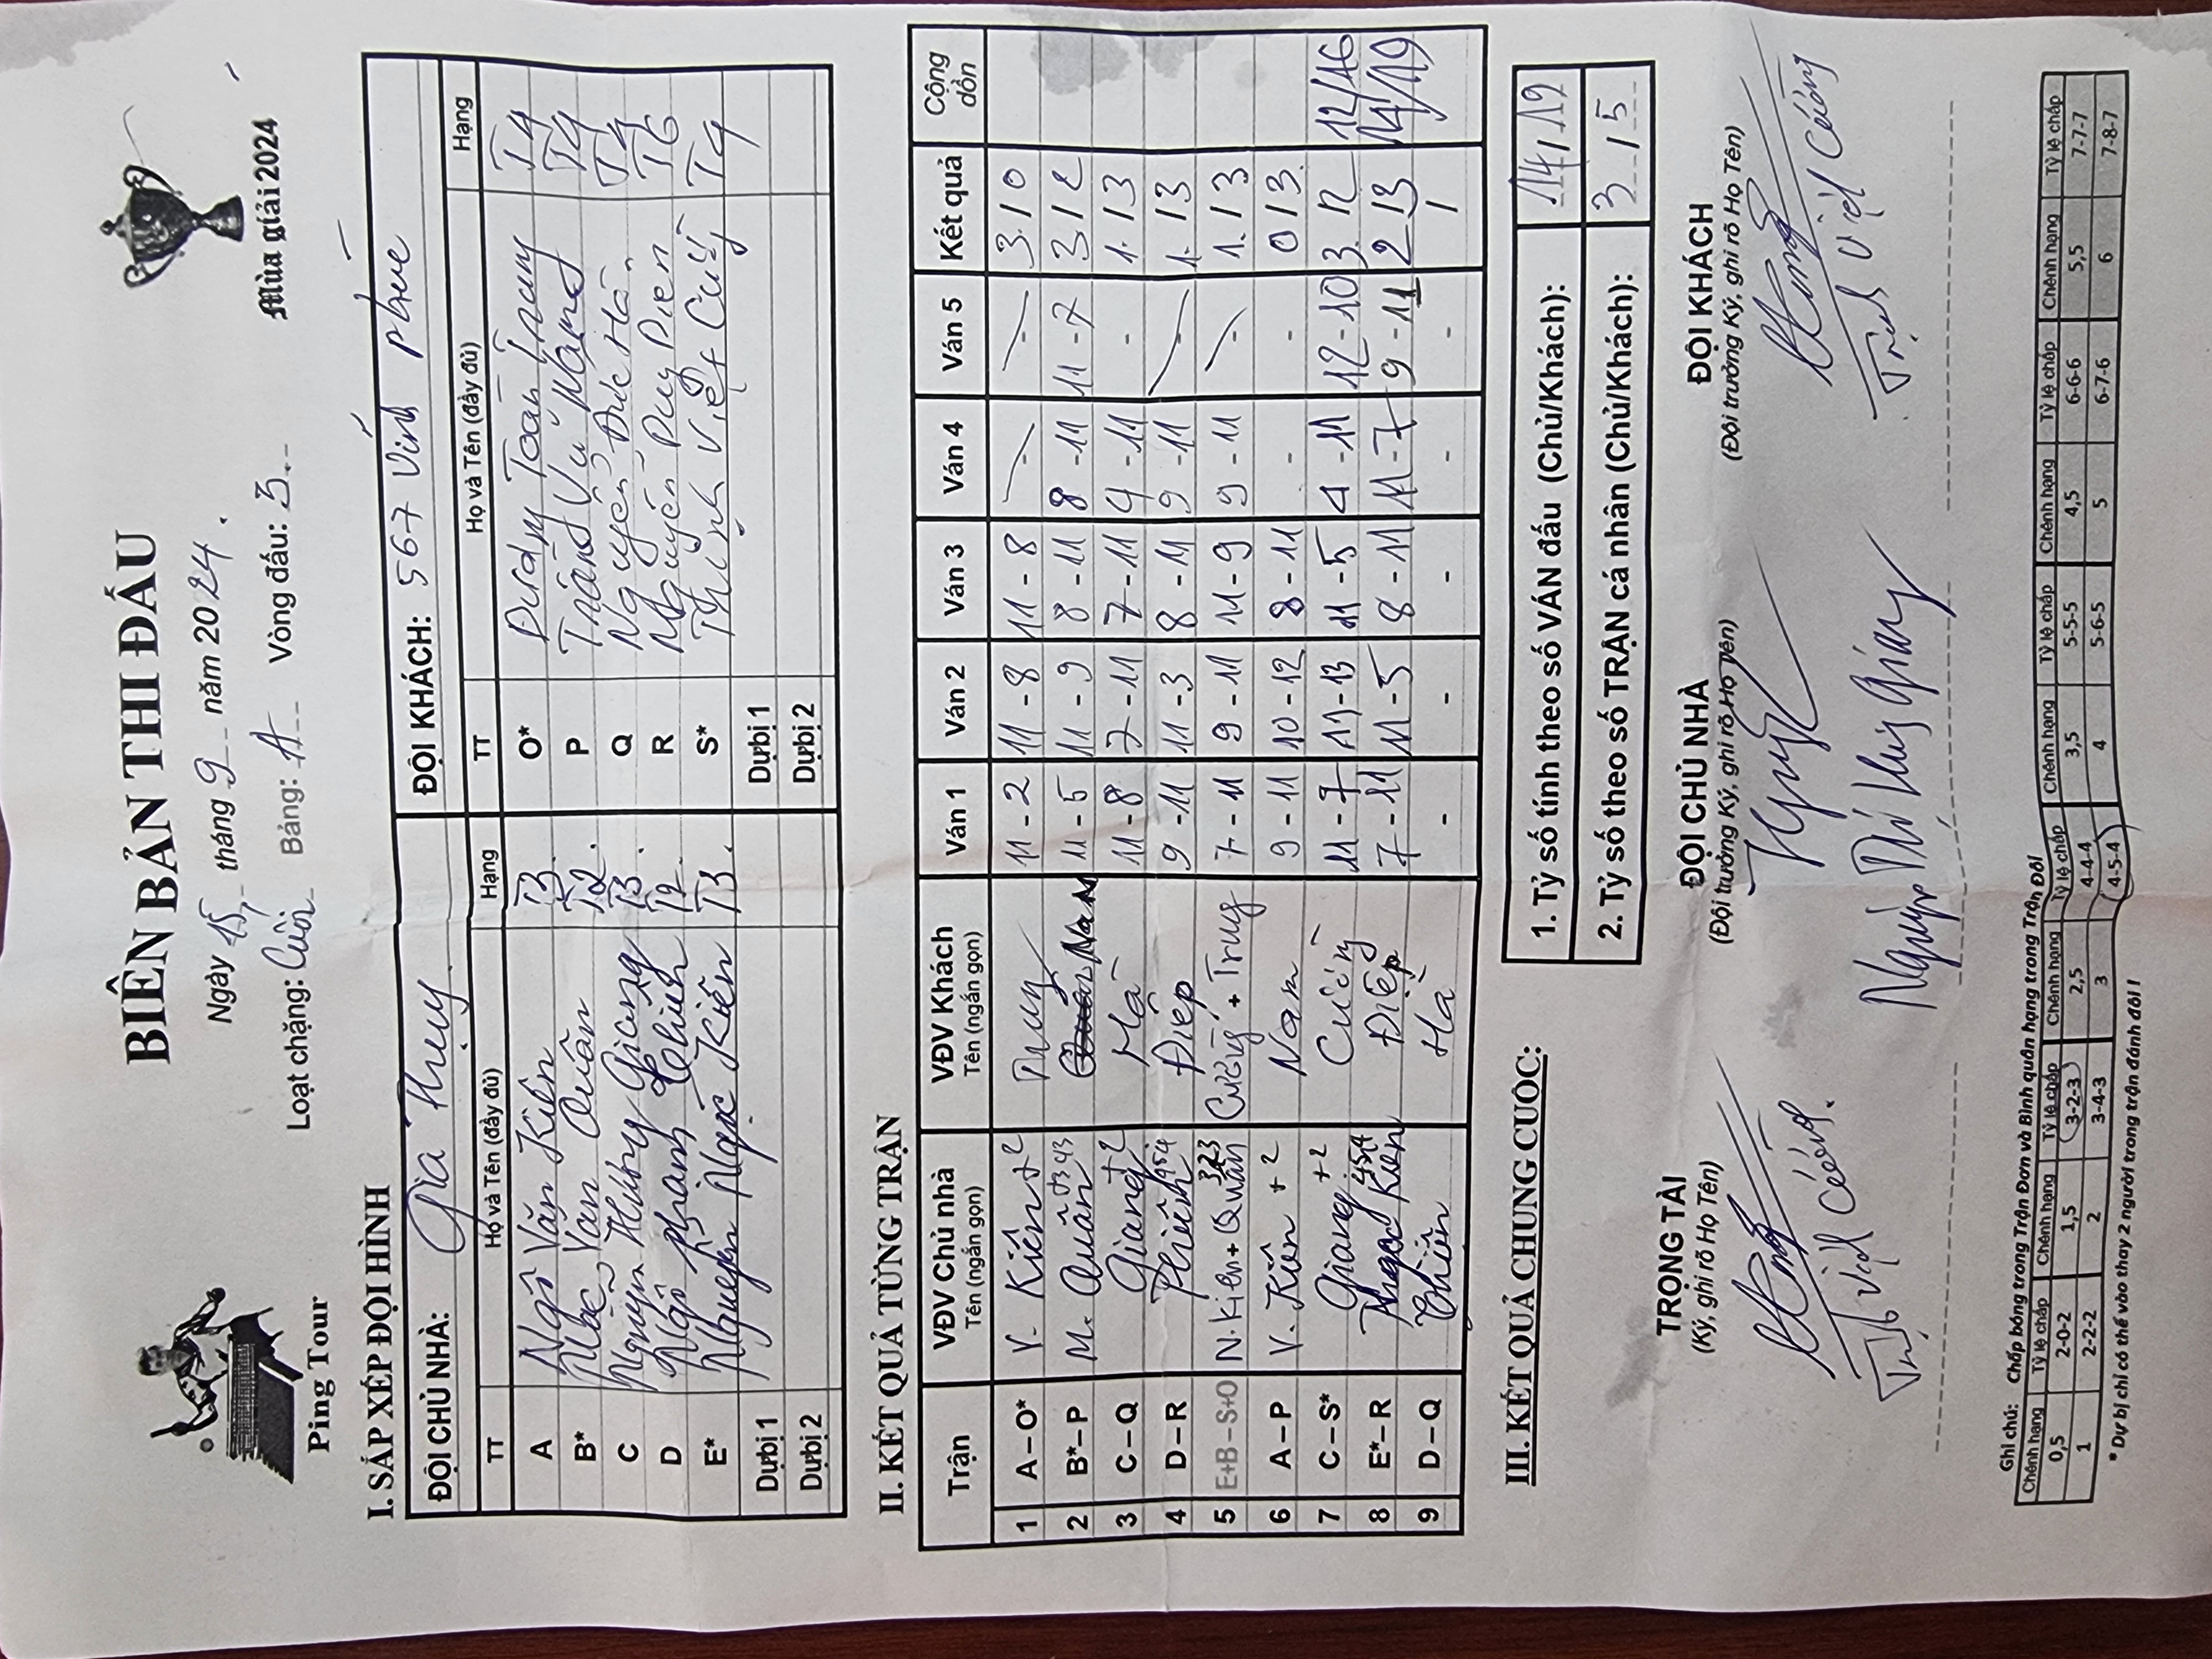 BIÊN BẢN THI ĐẤU
Ping Tour
Mùa giải 2024
Ngày 15 tháng 9 năm 2024.
Loạt chặng: Cuối Bảng: A Vòng đấu: 3
I. SẮP XẾP ĐỘI HÌNH
ĐỘI CHỦ NHÀ: Gia Thụy ĐỘI KHÁCH: 567 Vĩnh Phúc
TT Họ và Tên (đầy đủ) Hạng TT Họ và Tên (đầy đủ) Hạng
A Ngô Văn Kiên T3 O* Toàn Trung T4
B* Mạc Van Quân T2. P Vũ Nam T4
C Nguyễn Hương Giang T3. Q Nguyễn Đức Hà T4
D Ngô Phạm Chiến T2. R Nguyễn Duy Diep T6
E* Nguyen Ngọc Kiên T3. S* Trịnh Việt Cường T4
Dự bị 1 Dự bị 1
Dự bị 2 Dự bị 2
II. KẾT QUẢ TỪNG TRẬN
Trận VĐV Chủ nhà Tên (ngắn gọn) VĐV Khách Tên (ngắn gọn) Ván 1 Ván 2 Ván 3 Ván 4 Ván 5 Kết quả Cộng dồn
1 A – O* V. Kiên +2 Trung 11 - 2 11 - 8 11 - 8 3 / 0
2 B* – P M. Quân +343 Nam 11 - 5 11 - 9 8 - 11 8 - 11 11 - 7 3 / 2
3 C – Q Giang +2 Hà 11 - 8 7 - 11 7 - 11 4 - 11 - 1 / 3
4 D – R Chiến 454 Điệp 9 - 11 11 - 3 8 - 11 9 - 11 1 / 3
5 E+B – S+O N. Kiên + Quân 323 Cường + Trung 7 - 11 9 - 11 11 - 9 9 - 11 - 1 / 3
6 A – P V. Kiên +2 Nam 9 - 11 10 - 12 8 - 11 - - 0 / 3
7 C – S* Giang +2 Cường 11 - 7 11 - 13 11 - 5 4 - 11 12 - 10 3 / 2 12/16
8 E* – R Ngọc Kiên 454 Điệp 7 - 11 11 - 5 8 - 11 11 - 7 9 - 11 2 / 3 14/19
9 D – Q Chiến Hà - - - - - /
III. KẾT QUẢ CHUNG CUỘC:
1. Tỷ số tính theo số VÁN đấu (Chủ/Khách): 14 / 19
2. Tỷ số theo số TRẬN cá nhân (Chủ/Khách): 3 / 5
TRỌNG TÀI ĐỘI CHỦ NHÀ ĐỘI KHÁCH
(Ký, ghi rõ Họ Tên) (Đội trưởng Ký, ghi rõ Họ Tên) (Đội trưởng Ký, ghi rõ Họ Tên)
Trịnh Việt Cường. Giang Trịnh Việt Cường
Ghi chú: Chấp bóng trong Trận Đơn và Bình quân hạng trong Trận Đôi
Chênh hạng Tỷ lệ chấp Chênh hạng Tỷ lệ chấp Chênh hạng Tỷ lệ chấp Chênh hạng Tỷ lệ chấp Chênh hạng Tỷ lệ chấp Chênh hạng Tỷ lệ chấp
0,5 2-0-2 1,5 3-2-3 2,5 4-4-4 3,5 5-5-5 4,5 6-6-6 5,5 7-7-7
1 2-2-2 2 3-4-3 3 4-5-4 4 5-6-5 5 6-7-6 6 7-8-7
* Dự bị chỉ có thể vào thay 2 người trong trận đánh đôi !